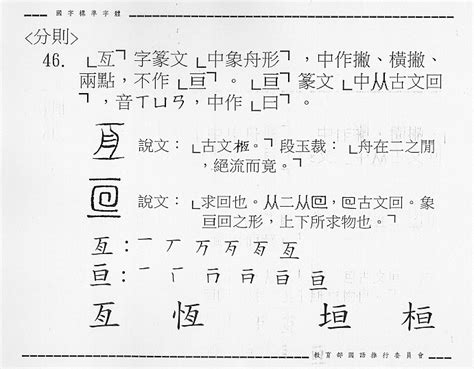 國字標準字體
<分則>
46. ㄴ亙ㄱ字篆文ㄴ中象舟形ㄱ，中作撇、橫撇、
兩點，不作ㄴ亘ㄱ。ㄴ亘ㄱ篆文ㄴ中从古文回
ㄱ，音ㄒㄩㄢ，中作ㄴ曰ㄱ。
說文：ㄴ古文㮓。ㄱ段玉裁：ㄴ舟在二之閒
，絕流而竟。ㄱ
說文：ㄴ求回也。从二从囘，囘古文回。象
亘回之形，上下所求物也。ㄱ
亙：
亘：
亙 恆 垣 桓
教育部國語推行委員會